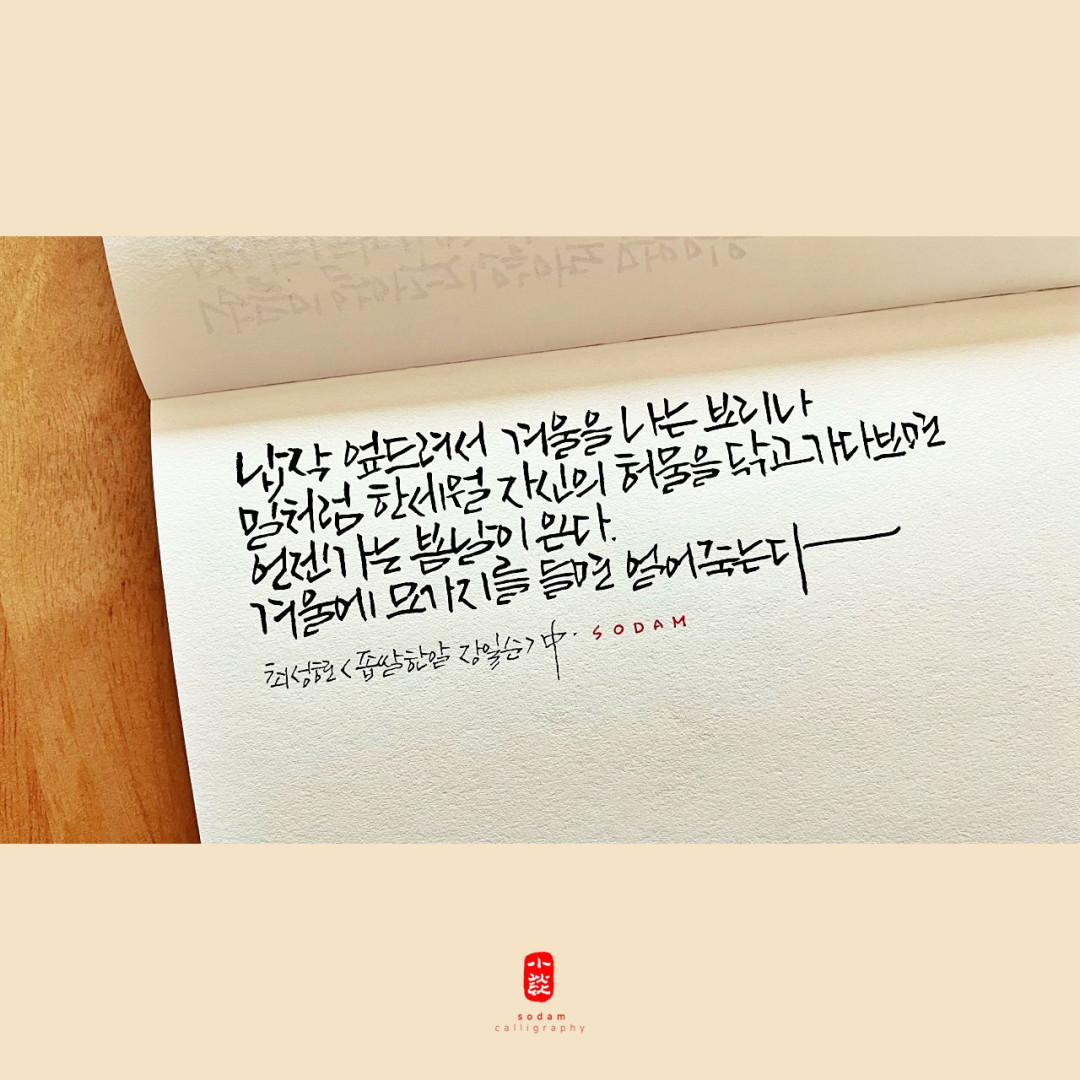 납작 엎드려서 겨울을 나는 보리나
밀처럼 한세월 자신의 허물을 닦고가다보면
언젠가는 봄날이 온다.
겨울에 모가지를 들면 얼어죽는다
최성현 <좁쌀한알 장일순> 中. SODAM
小談
sodam
calligraphy